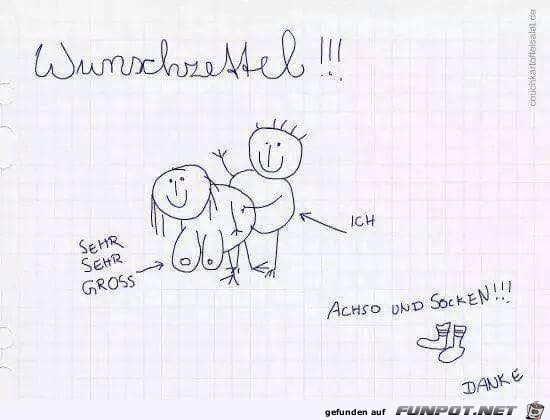 Wunschzettel!!!
couchkartoffelsalat.de
SEHR
SEHR
GROSS
ICH
ACHSO UND SOCKEN!!!
DANKE
gefunden auf FUNPOT.NET